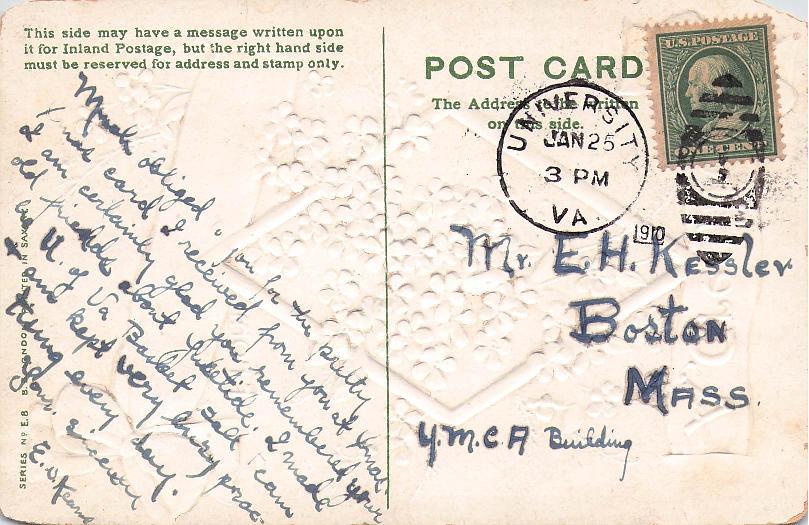 This side may have a message written upon
it for Inland Postage, but the right hand side
must be reserved for address and stamp only.
Much obliged to you for the pretty
Xmas card I received from you at Xmas.
I am certainly glad you remembered your
old friends about Yuletide. I made
the U. of Va Basket Ball Team
& am kept very busy prac-
tising every day.
Your sincerer
SERIES No E.B
POST CARD
The Address to be written
on this side.
U.S. POSTAGE
ONE CENT
UNIVERSITY
JAN 25
3 PM
VA.
1910
Mr. E. H. Kessler
Boston
Mass.
Y.M.C.A Building